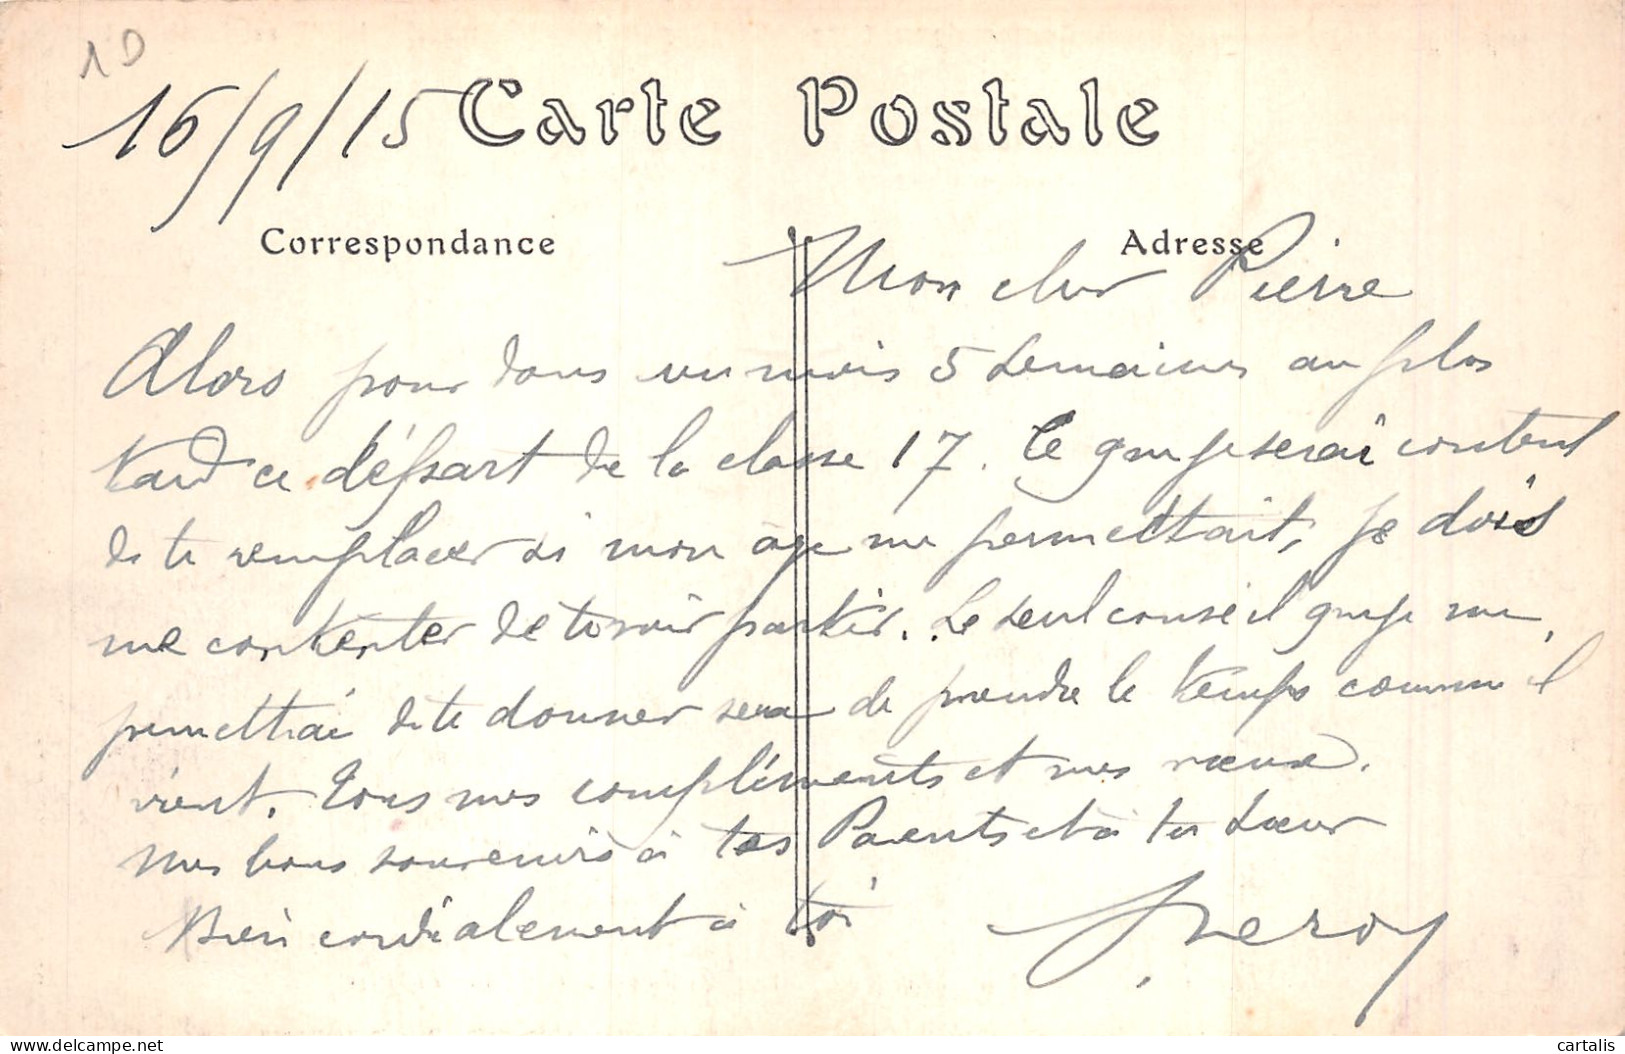 10
16/9/15 Carte Postale
Correspondance Adresse
Mon cher Pierre
Alors pour dans un mois 5 semaines au plus
tard ce départ de la classe 17. Ce que je serai content
de te remplacer si mon âge me permettait, je dois
me contenter de te voir partir. Le seul conseil que je me
permettrai de te donner sera de prendre le temps comme il
vient. Tous mes compliments et mes vœux.
Mes bons souvenirs à tes Parents et à ta Sœur
Bien cordialement à toi
cartalis